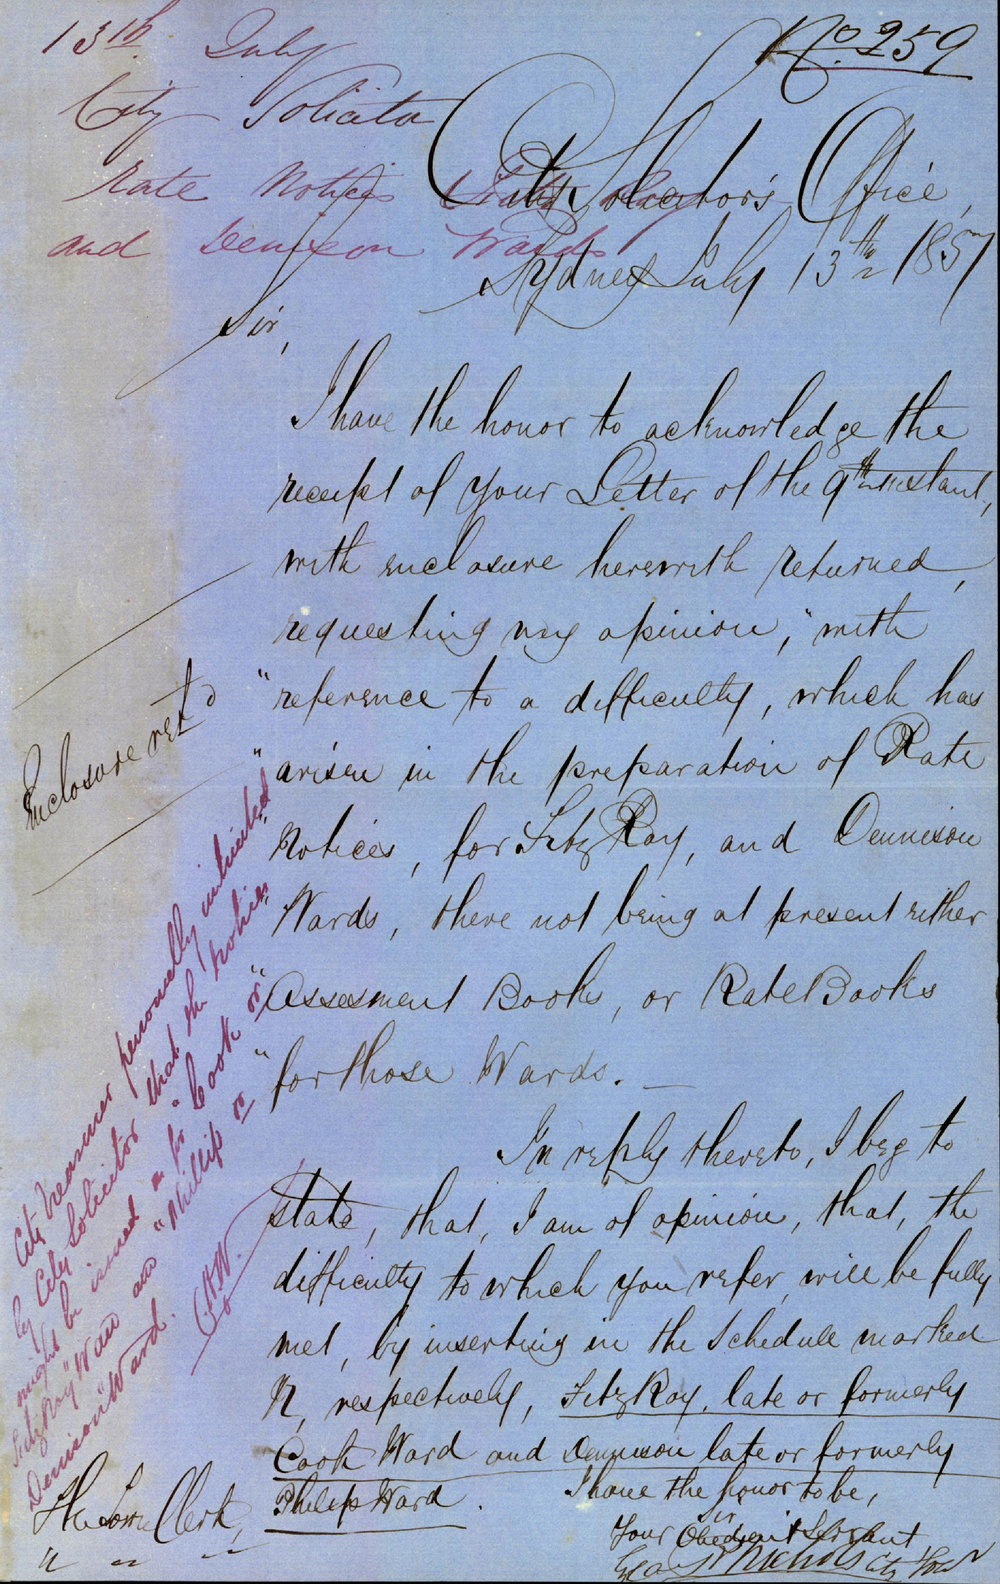 No. 259
13th July
City Solicitor
Rate Notices Fitz Roy
and Denison Wards
City Solicitor's Office,
Sydney July 13th 1857
Sir,
I have the honor to acknowledge the
receipt of your Letter of the 9th instant,
with enclosure herewith returned,
requesting my opinion, "with
"reference to a difficulty, which has
"arisen in the preparation of Rate
"Notices, for Fitz Roy, and Dennison
"Wards, there not being at present either
"Assesment Books, or Rate Books
"for those Wards. —
In reply thereto, I beg to
state, that, I am of opinion, that, the
difficulty to which you refer, will be fully
met, by inserting in the Schedule marked
N, respectively, FitzRoy, late or formerly
Cook Ward and Dennison late or formerly
Philip Ward.
I have the honor to be,
Sir
Your Obedient Servant
Nichols
The Town Clerk,
" " "
Enclosure ret'd
City Treasurer personally instructed
by City Solicitor that the notices
might be issued as for "Cook or
Fitz Roy" Ward and "Phillip or
Denison" Ward.